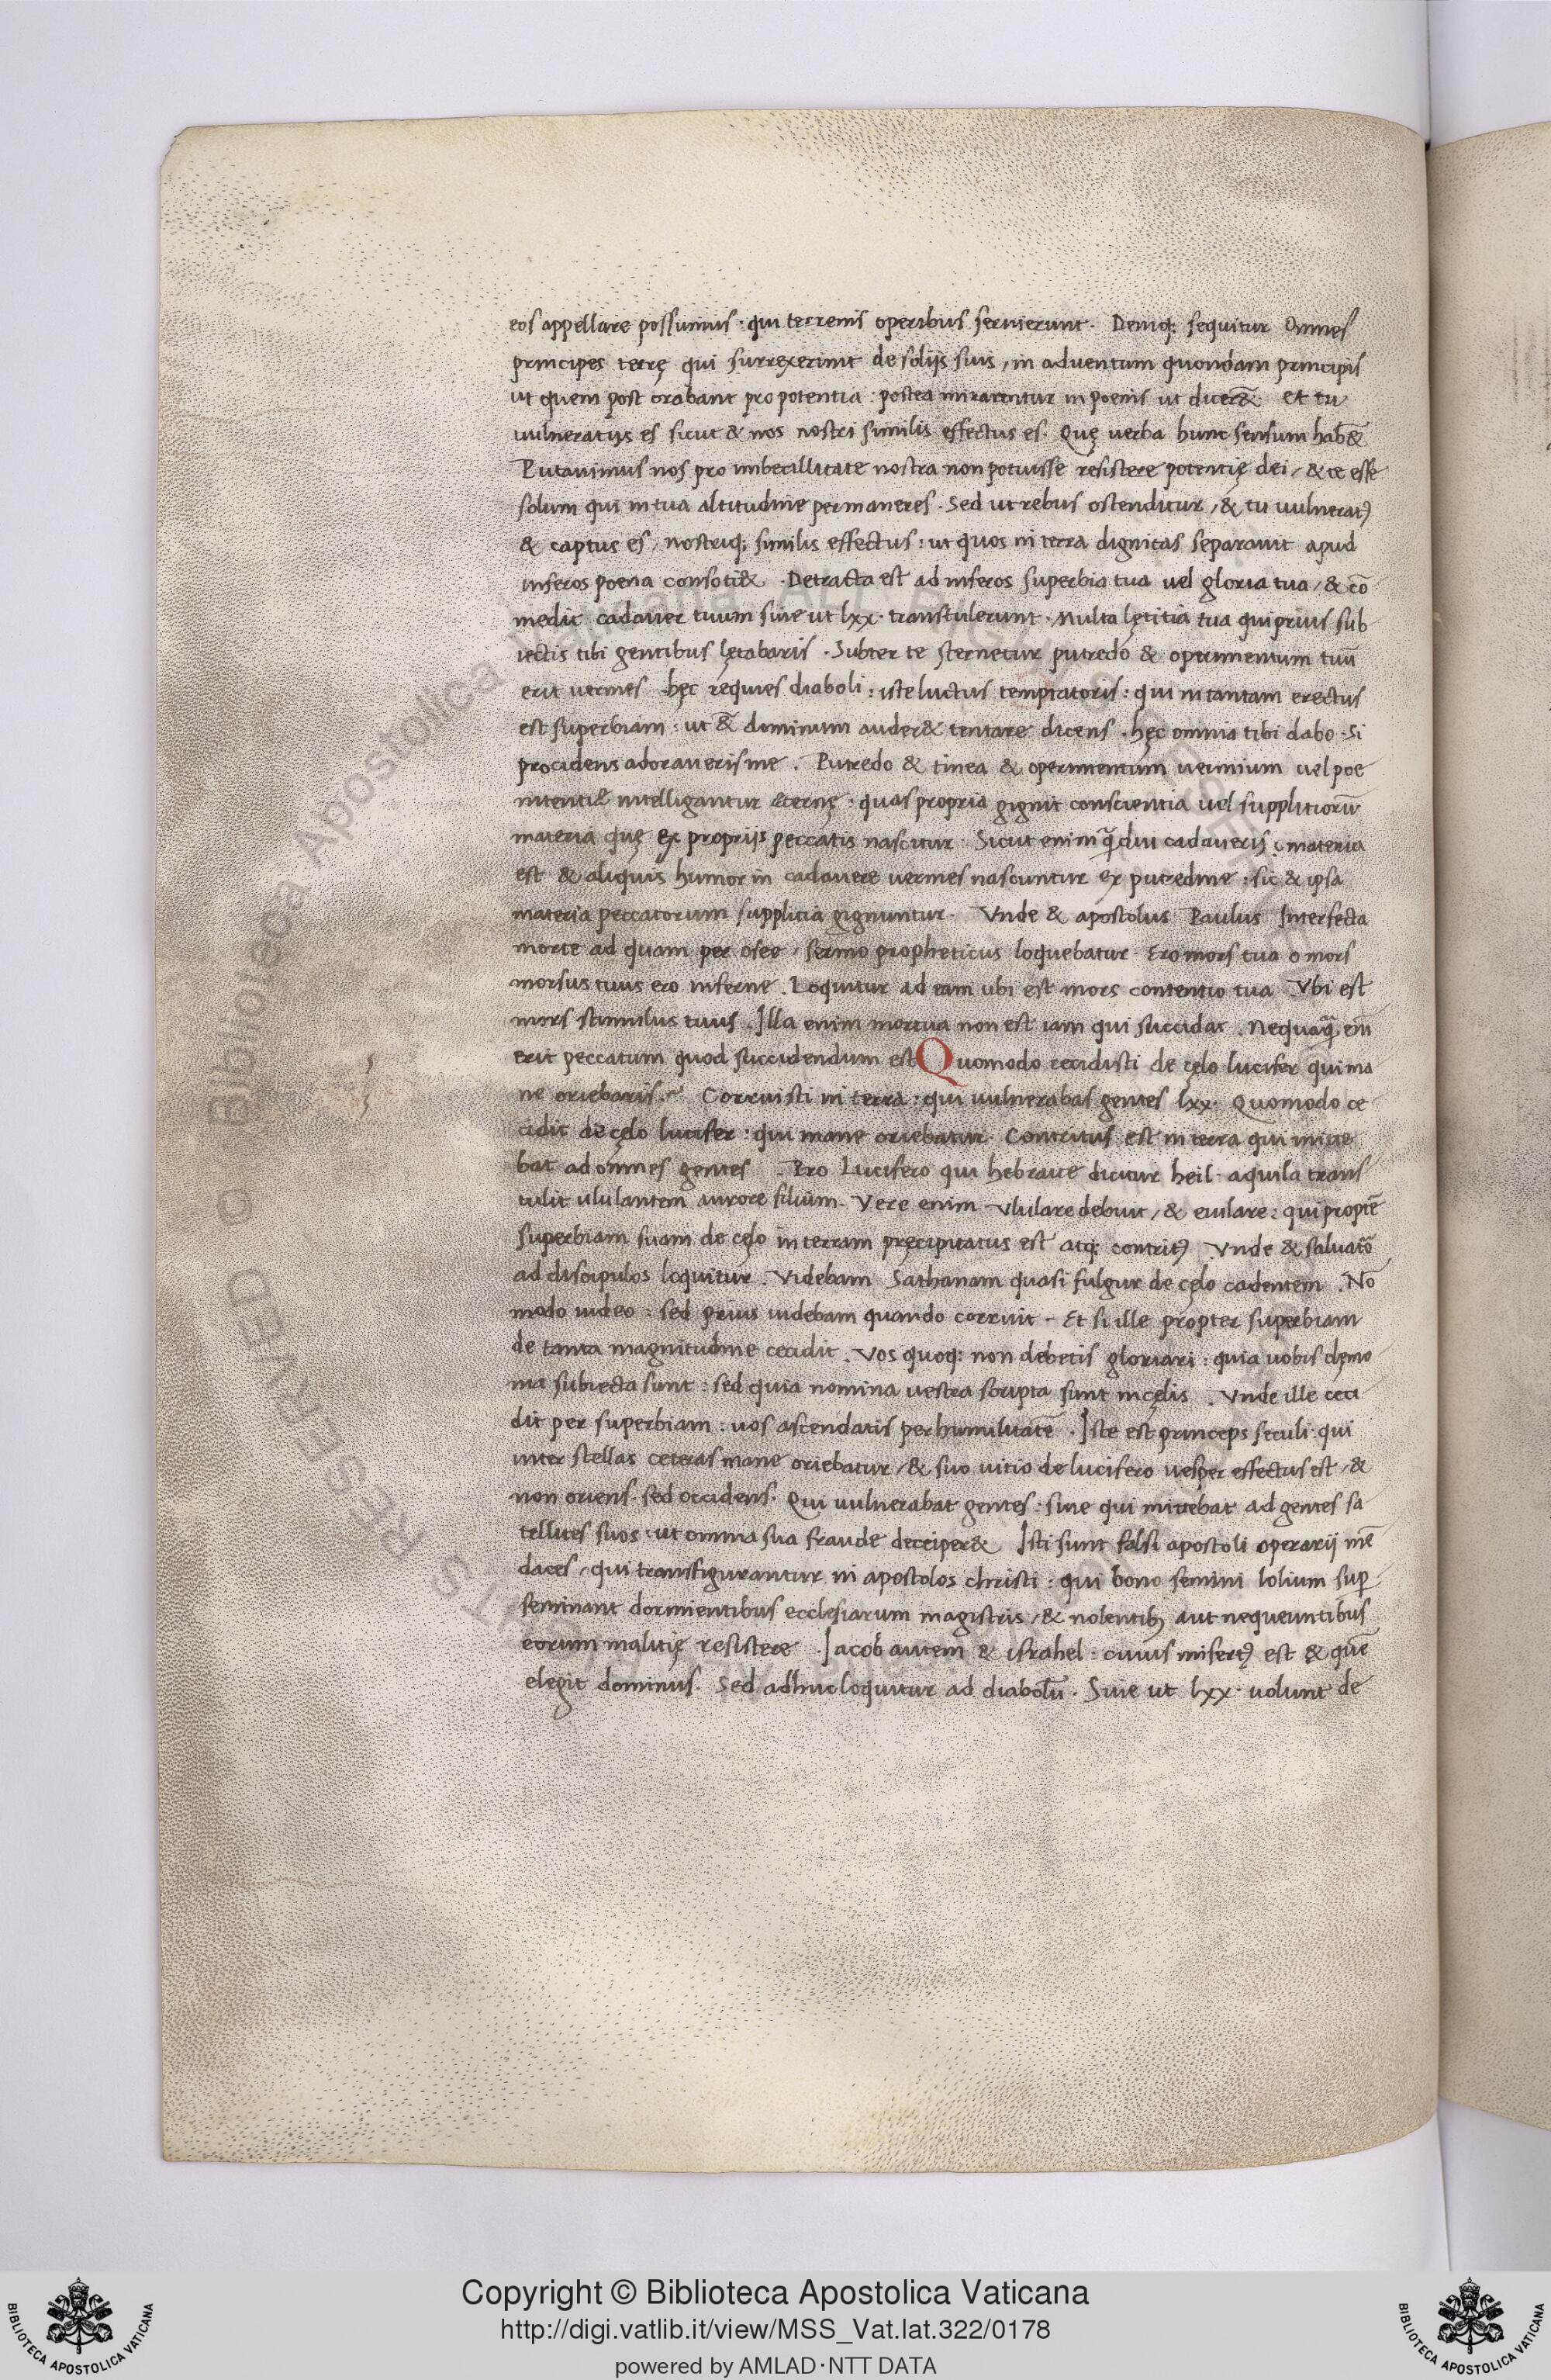 eos appellare possumus · qui terrenis operibus seruierunt · Deniq; sequitur Omnes
principes terrę qui surrexerunt de solijs suis, in aduentum quondam principis
ut quem post orabant pro potentia : postea mirarentur in poenis ut dicer& et tu
uulneratus es sicut & nos nostri similis effectus es · Quę uerba hunc sensum hab&
Putauimus nos pro imbecillitate nostra non potuisse resistere potentię dei, & te esse
solum qui in tua altitudine permaneres · Sed ut rebus ostenditur, & tu uulneratꝰ
& captus es, nostriq; similis effectus : ut quos in terra dignitas separauit apud
inferos poena consoti& · Detracta est ad inferos superbia tua uel gloria tua, & cō
medit cadauer tuum siue ut lxx · transtulerunt · Multa lętitia tua qui prius sub
iectis tibi gentibus lętabaris · Subter te sternetur putredo & operimentum tuū
erit uermes hęc requies diaboli : iste luctus temptatoris : qui in tantam erectus
est superbiam : ut & dominum auder& tentare dicens · hęc omnia tibi dabo · Si
procidens adoraueris me . Putredo & tinea & operimentum uermium uel poe
nitentię intelligantur &ernę : quas propria gignit conscientia uel supplitiorū
materia quę ex proprijs peccatis nascitur Sicut enim q̄diu cadaueris materia
est & aliquis humor in cadauere uermes nascuntur ex putredine : sic & ipsa
materia peccatorum supplicia gignuntur · Vnde & apostolus Paulus Interfecta
morte ad quam per osee, sermo propheticus loquebatur · Ero mors tua o mors
morsus tuus ero inferne . Loquitur ad eam ubi est mors contentio tua . Vbi est
mors stimulus tuus . Illa enim mortua non est iam qui succidat . Nequaq̄ em̄
erit peccatum quod succidendum est Quomodo cecidisti de cęlo lucifer qui ma
ne oriebaris Corruisti in terra : qui uulnerabas gentes lxx · Quomodo ce
cidit de cęlo lucifer : qui mane oriebatur · Contritus est in terra qui mitte
bat ad omnes gentes . Pro Lucifero qui hebraice dicitur heil · aquila trans
tulit ululantem aurore filium · Vere enim Vlulare debuit, & eiulare : qui proptē
superbiam suam de cęlo in terram pręcipitatus est atq; contritꝰ Vnde & saluatō
ad discipulos loquitur . Videbam Sathanam quasi fulgur de cęlo cadentem . Nō
modo uideo : sed prius uidebam quando corruit - Et si ille propter superbiam
de tanta magnitudine cecidit . Vos quoq; non debetis gloriari : quia uobis dęmo
nia subiecta sunt : sed quia nomina uestra scripta sunt in cęlis . Vnde ille ceci
dit per superbiam : uos ascendatis per humilitatē . Iste est princeps seculi : qui
inter stellas ceteras mane oriebatur, & suo uitio de lucifero uesper effectus est, &
non oriens sed occidens · Qui uulnerabat gentes : siue qui mittebat ad gentes sa
tellites suos : ut omnia sua fraude deciper& Isti sunt falsi apostoli operarij mē
daces, qui transfigurantur in apostolos christi : qui bono semini lolium sup
seminant dormientibus ecclesiarum magistris, & nolentibꝫ aut nequeuntibus
eorum malitię resistere . Iacob autem & israhel : cuius misertꝰ est & quē
elegit dominus . Sed adhuc loquitur ad diabolū . Siue ut lxx · uolunt de
Copyright © Biblioteca Apostolica Vaticana
http://digi.vatlib.it/view/MSS_Vat.lat.322/0178
powered by AMLAD·NTT DATA
BIBLIOTECA APOSTOLICA VATICANA
BIBLIOTECA APOSTOLICA VATICANA